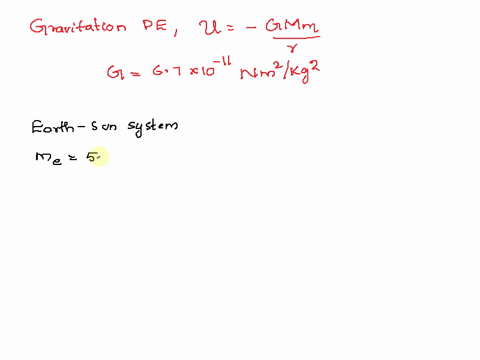 Gravitation PE, U = - GMm/r
G = 6.7 × 10^-11 Nm²/Kg²
Earth-Sun system
me = 5.